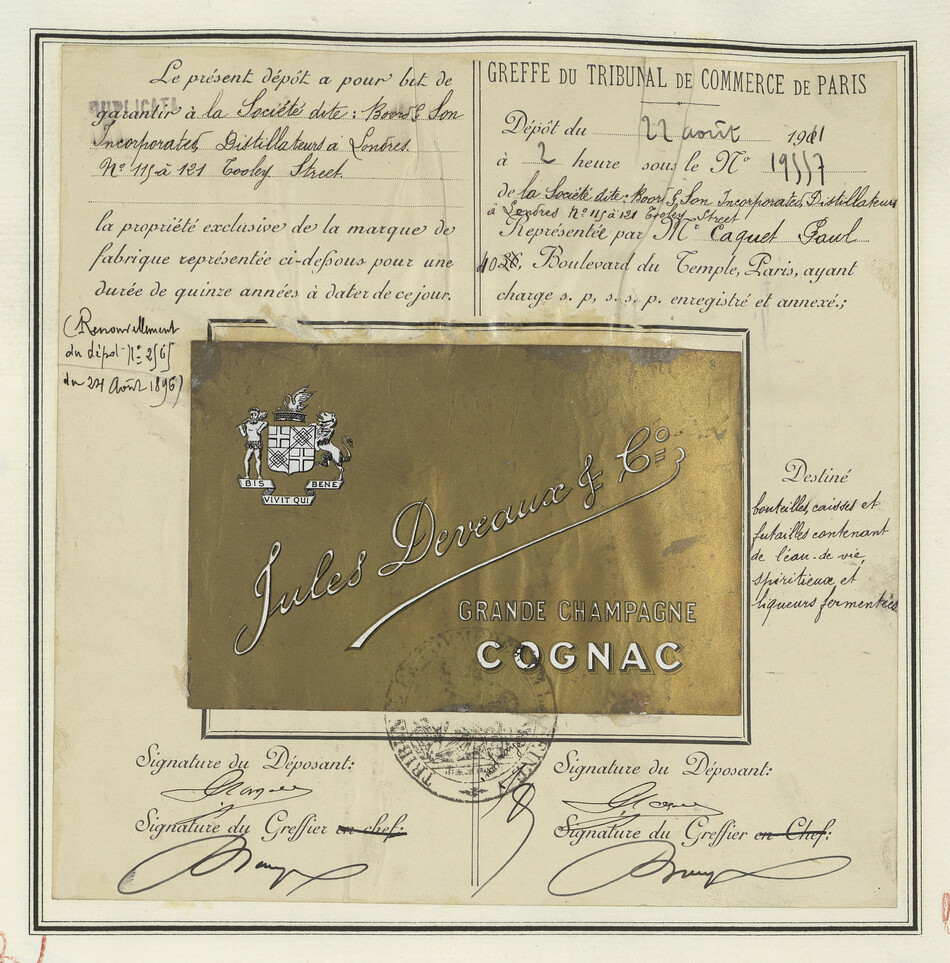 Le présent dépôt a pour but de
DUPLICATA
garantir à la Société dite: Boord & Son
Incorporated, Distillateurs à Londres.
Nº 115 à 121 Tooley Street.
la propriété exclusive de la marque de
fabrique représentée ci-dessous pour une
durée de quinze années à dater de ce jour.
(Renouvellement
du dépôt Nº 2565
du 24 Août 1896)
GREFFE DU TRIBUNAL DE COMMERCE DE PARIS
Dépôt du 22 août 1911
à 2 heure sous le Nº 19557
de la Société dite: Boord & Son Incorporated, Distillateurs
à Londres Nº 115 à 121 Tooley Street
Représentée par Mr Caquet Paul
Boulevard du Temple, Paris, ayant
charge s. p. s. s. p. enregistré et annexé.;
BIS VIVIT QUI BENE
Jules Deveaux & Co
GRANDE CHAMPAGNE
COGNAC
Destiné
bouteilles, caisses et
futailles contenant
de l'eau-de-vie,
spiritieux et
liqueurs fermentées
Signature du Déposant:
Signature du Greffier en chef:
Signature du Déposant:
Signature du Greffier en Chef: